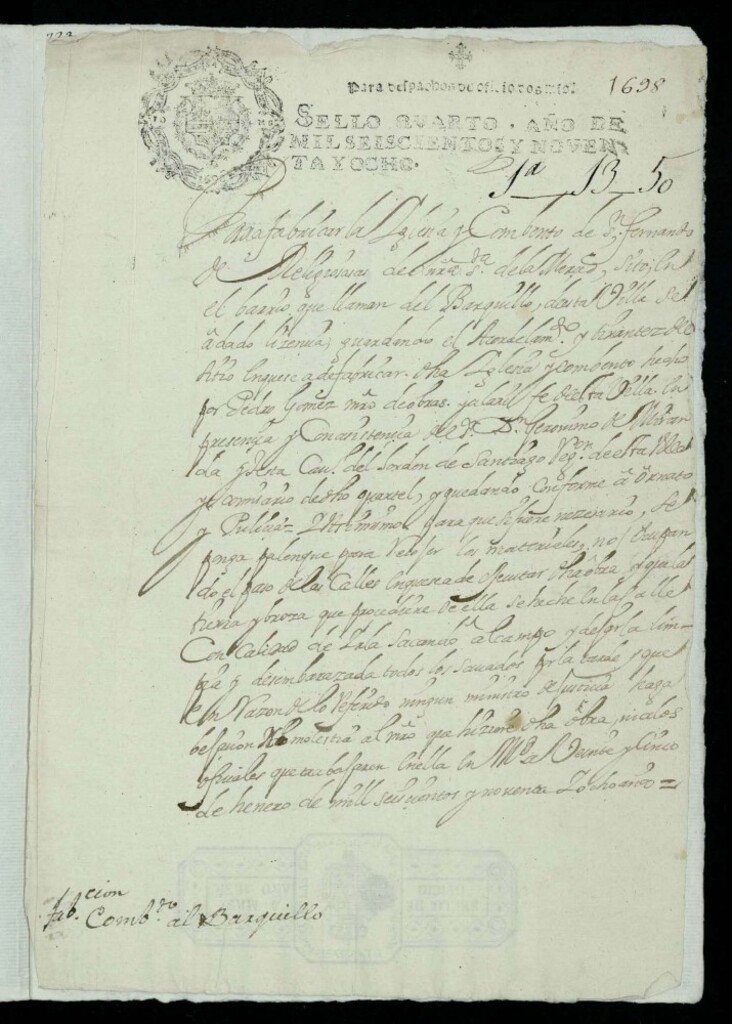 Para despachos de oficio dos mrs. 1698
SELLO QVARTO. AÑO DE
MIL SEISCIENTOS Y NOVEN
TA Y OCHO.
1ª 13 50
Para fabricar la Iglesia y Combento de Sn. fernando
de Religiossas de nra. Sra. de la Merzd, sito en
el barrio que llaman del Barquillo, desta Villa se
a dado lizenzia, guardando el Acordelamto. y tirantez de
sitio en que se a de fabricar dha Iglesia y combento hecho
por Pedro Gomez mro de obras y alarife desta Villa en
presencia y con asistencia del Sr. Dn. Geronimo de Miran
da y Testa Cavo. del horden de Santiago Regor. de esta Villa
y comisario de dho quartel, y quedando conforme a Ornato
y Pulicia = Y asimismo para que si fuere nezesario, se
ponga palenque para Recojer los materiales, no ocupan
do el paso de las Calles en que se a de executar dha obra y que la
tierra y broza que procediere de ella se heche en la calle
Con calidad de irla sacando al campo y dejarla lim-
pia y desembarazada todos los savados por la tarde y que
en Razon de lo Referido ningun ministro de justicia haga
bejazion ni molestia al mro que hiziere dha obra, ni a los
ofiziales que trabajaren en ella en Md. a Veinte y Cinco
de henero de mill seiscientos y noventa y ocho años =
fabcion
Combto al Barquillo